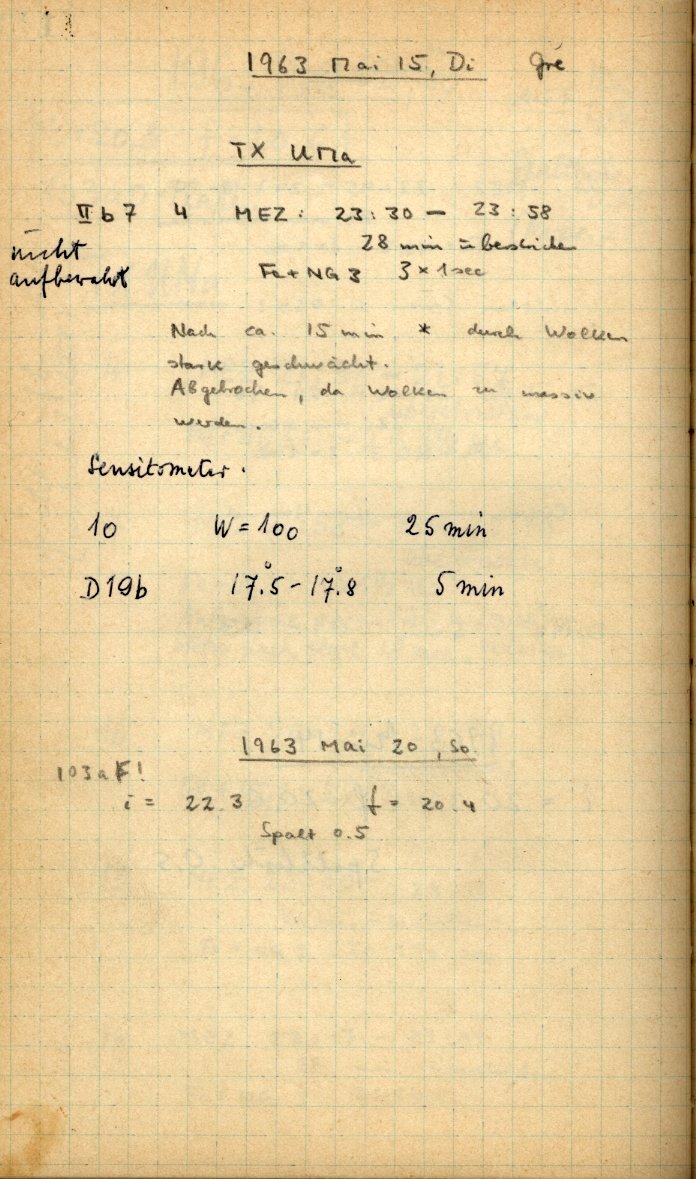 1963 Mai 15, Di Gre
TX UMa
II b 7 4 MEZ: 23:30 – 23:58
nicht
28 min überstrichen
aufbewahrt
Fe + NG 3 3 × 1 sec
Nach ca. 15 min * durch Wolken
stark geschwächt.
Abgebrochen, da Wolken zu massiv
werden.
Sensitometer.
10 W = 100 25 min
D19b 17°.5 – 17°.8 5 min
1963 Mai 20, So
103aF!
i = 22.3 f = 20.4
Spalt 0.5